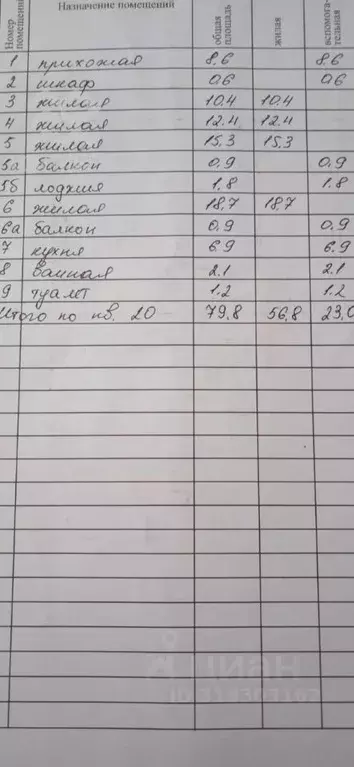 Номер помещения Назначение помещений общая площадь жилая вспомога-тельная
1 прихожая 8.6 8.6
2 шкаф 0.6 0.6
3 жилая 10.4 10.4
4 жилая 12.4 12.4
5 жилая 15.3 15.3
5а балкон 0.9 0.9
5б лоджия 1.8 1.8
6 жилая 18.7 18.7
6а балкон 0.9 0.9
7 кухня 6.9 6.9
8 ванная 2.1 2.1
9 туалет 1.2 1.2
Итого по кв. 20 79.8 56.8 23.0